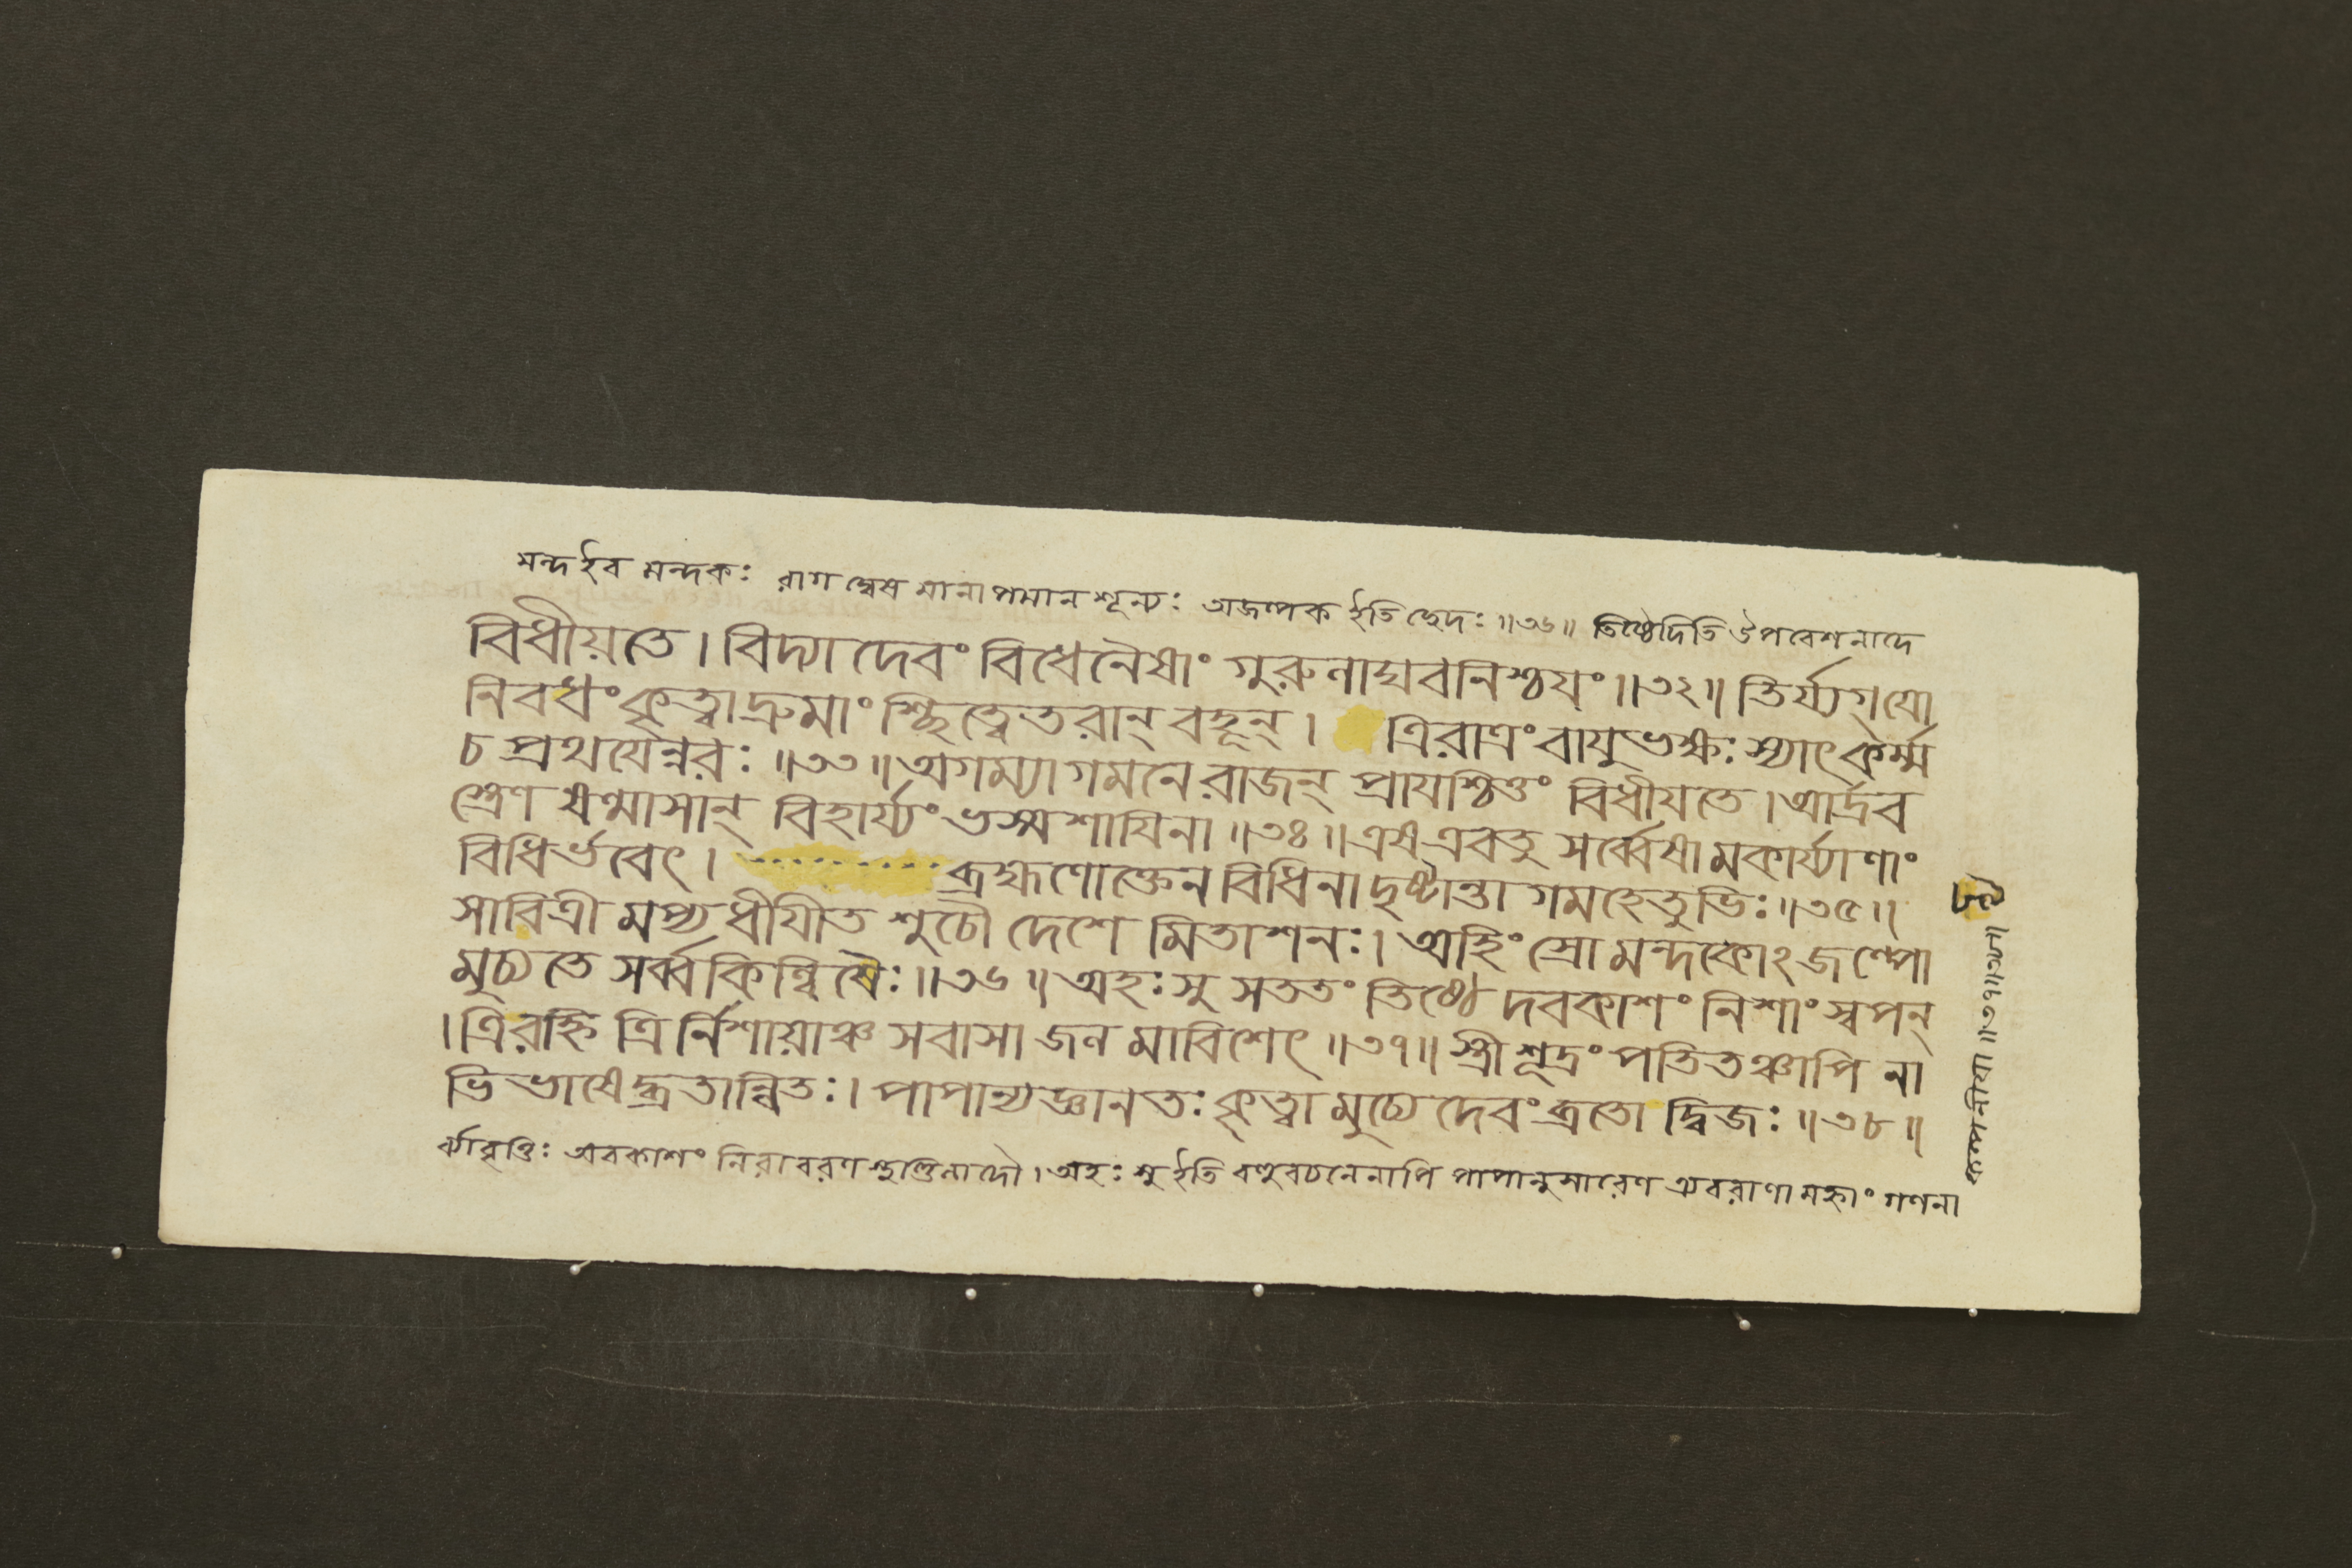 মন্দ ইব মন্দকঃ রাগ দ্বেষ মানাপমান শূন্যঃ অজল্পক ইতি ছেদঃ ॥৩৬॥ তিষ্ঠেদিতি উপবেশনাদে
বিধীয়তে। বিদ্যা দেবং বিধেনৈষাং গুরুলাঘবনিশ্চযং ॥৩২॥ তির্য্যগ্ যো
নিবধং কৃত্বা দ্রুমাংশ্ছিত্ত্বেতরান্ বহূন্। ত্রিরাত্রং বাযুভক্ষঃ স্যাৎ কর্ম্ম
চ প্রথযেন্নরঃ ॥৩৩॥ অগম্যাগমনে রাজন্ প্রাযশ্চিত্তং বিধীযতে। আর্দ্রব
স্ত্রেণ ষণ্মাসান্ বিহার্য্যং ভস্মশাযিনা ॥৩৪॥ এষ এবতু সর্ব্বেষামকার্য্যাণাং
বিধির্ভবেৎ। ব্রহ্মণোক্তেন বিধিনা দৃষ্টান্তাগমহেতুভিঃ ॥৩৫॥
সাবিত্রীমপ্যধীযীত শুচৌ দেশে মিতাশনঃ। অহিংস্রো মন্দকোঽজল্পো
মুচ্যতে সর্ব্বকিল্বিষৈঃ ॥৩৬॥ অহঃসু সততং তিষ্ঠেদবকাশং নিশাং স্বপন্
। ত্রিরহ্নি ত্রির্নিশায়াঞ্চ সবাসা জলমাবিশেৎ ॥৩৭॥ স্ত্রী শূদ্রং পতিতঞ্চাপি না
ভিভাষেদ্ব্রতান্বিতঃ। পাপান্যজ্ঞানতঃ কৃত্বা মুচ্যেদেবং ব্রতো দ্বিজঃ ॥৩৮॥
র্ব্যাবৃত্তিঃ অবকাশং নিরাবরণ স্থণ্ডিলাদৌ। অহঃ সু ইতি বহুবচনেনাপি পাপানুসারেণ অবরাণামহ্নাং গণনা
কল্পনীযা ॥৩৭॥